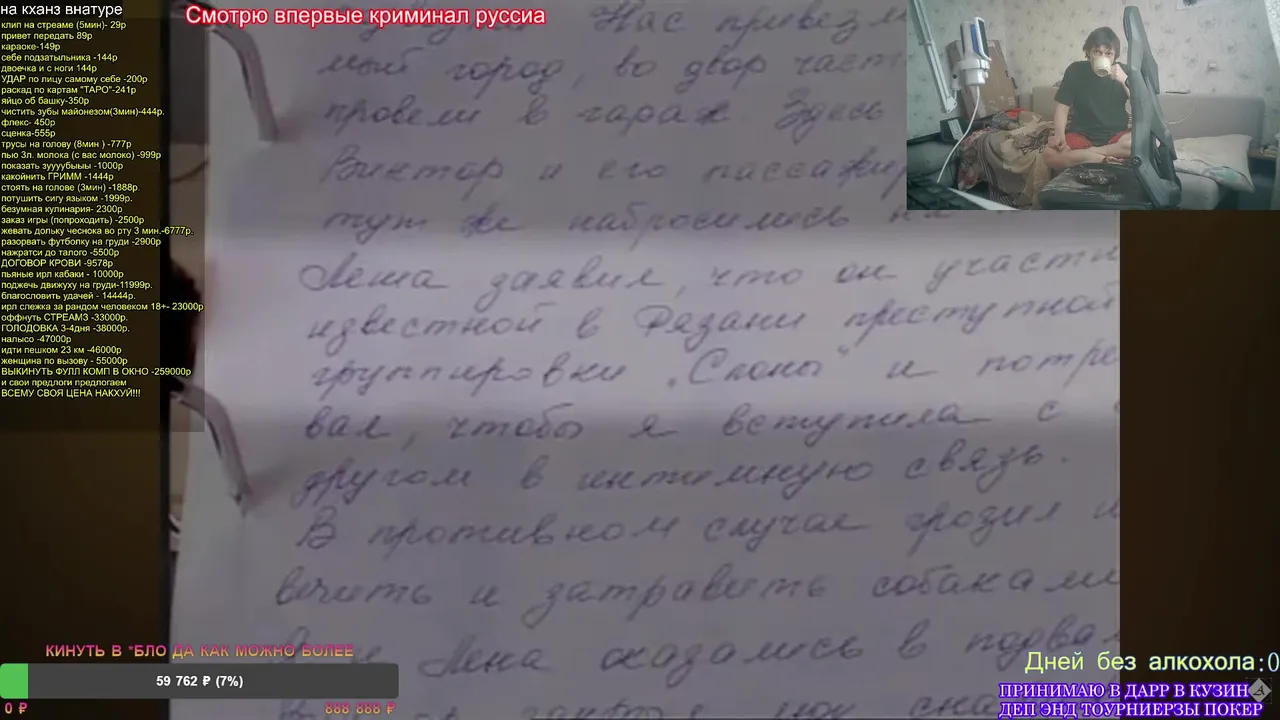 на кханз внатуре
клип на стреаме (5мин)- 29р
привет передать 89р
караоке-149р
себе подзатыльника -144р
двоечка и с ноги 144р
УДАР по лицу самому себе -200р
расклад по картам "ТАРО"-241р
яйцо об башку-350р
чистить зубы майонезом(3мин)-444р.
флекс- 450р
сценка-555р
трусы на голову (8мин )-777р
пью 3л. молока (с вас молоко) -999р
показать зуууубыыы -1000р
какойнить ГРИММ -1444р
стоять на голове (3мин) -1888р.
потушить сигу языком -1999р.
безумная кулинария- 2300р
заказ игры (попроходить) -2500р
жевать дольку чеснока во рту 3 мин.-6777р.
разорвать футболку на груди -2900р
нажратси до талого -5500р
ДОГОВОР КРОВИ -9578р
пьяные ирл кабаки - 10000р
поджечь движуху на груди-11999р.
благословить удачей - 14444р.
ирл слежка за рандом человеком 18+- 23000р
оффнуть СТРЕАМЗ -33000р.
ГОЛОДОВКА 3-4дня -38000р.
налысо -47000р
идти пешком 23 км -46000р
женщина по вызову - 55000р
ВЫКИНУТЬ ФУЛЛ КОМП В ОКНО -259000р
и свои предлоги предпогаем
ВСЕМУ СВОЯ ЦЕНА НАКХУЙ!!!
Смотрю впервые криминал руссиа
Нас привезл
мый город, во двор част
провели в гараж Здесь
Виктор и его пассажир
тут же набросились на
Леша заявил, что он участн
известной в Рязани преступной
группировки „Слоны" и потре
вал, чтобы я вступила с
другом в интимную связь.
В противном случае грозил и
вечить и затравить собаками
Лена оказались в подва
КИНУТЬ В *БЛО ДА КАК МОЖНО БОЛЕЕ
59 762 ₽ (7%)
0 ₽ 888 888 ₽
Дней без алкохола:0
ПРИНИМАЮ В ДАРР В КУЗИН
ДЕП ЭНД ТОУРНИЕРЗЫ ПОКЕР